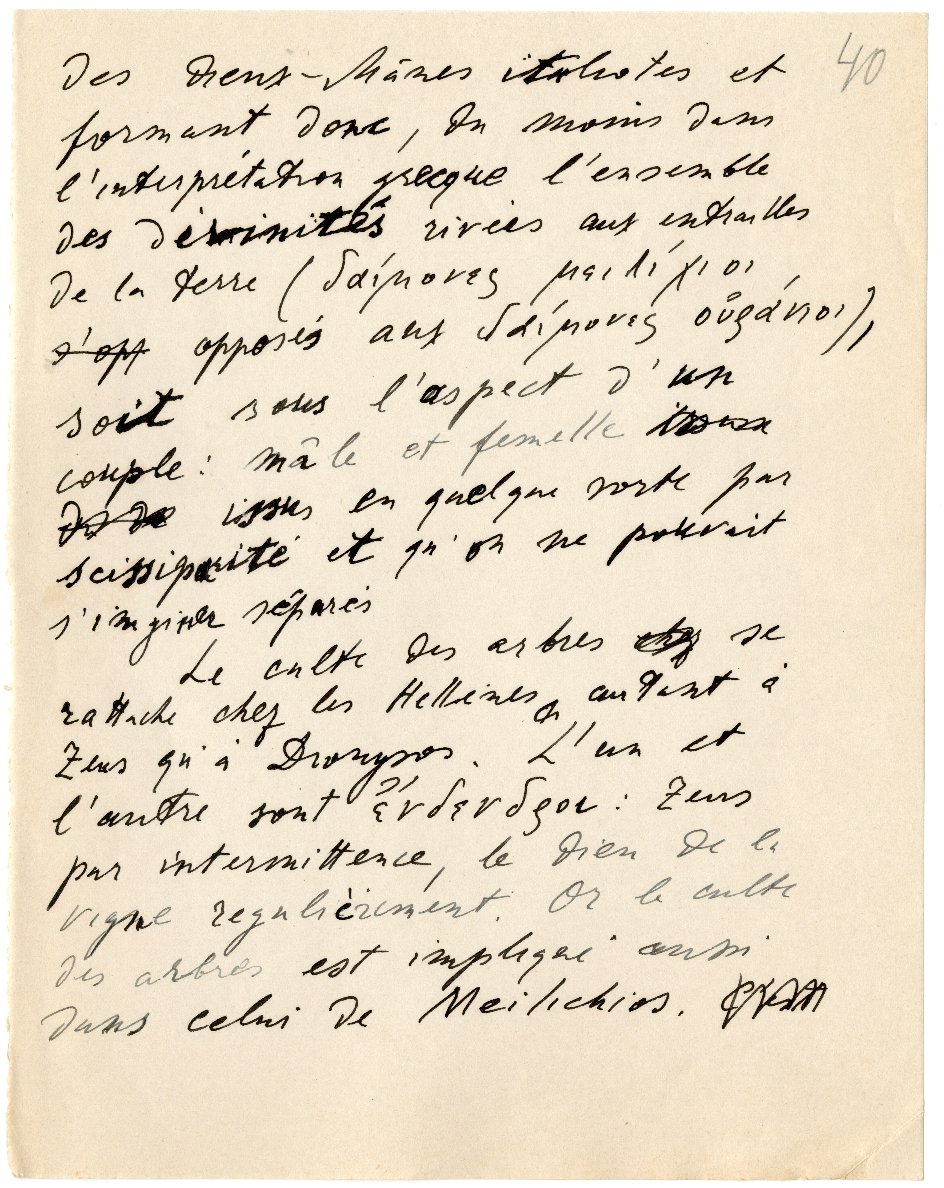 40
des dieux-Mânes italiotes et
formant donc, du moins dans
l'interprétation grecque l'ensemble
des divinités rivées aux entrailles
de la terre (δαίμονες μειλίχιοι
s'opp opposés aux δαίμονες οὐράνιοι),
soit sous l'aspect d'un
couple: mâle et femelle
issus en quelque sorte par
scissiparité et qu'on ne pouvait
s'imginer séparés
Le culte des arbres chez se
rattache chez les Hellènes autant à
Zeus qu'à Dionysos. L'un et
l'autre sont ἔνδενδροι: Zeus
par intermittence, le dieu de la
vigne regulièrement. Or le culte
des arbres est impliqué aussi
dans celui de Meilichios.